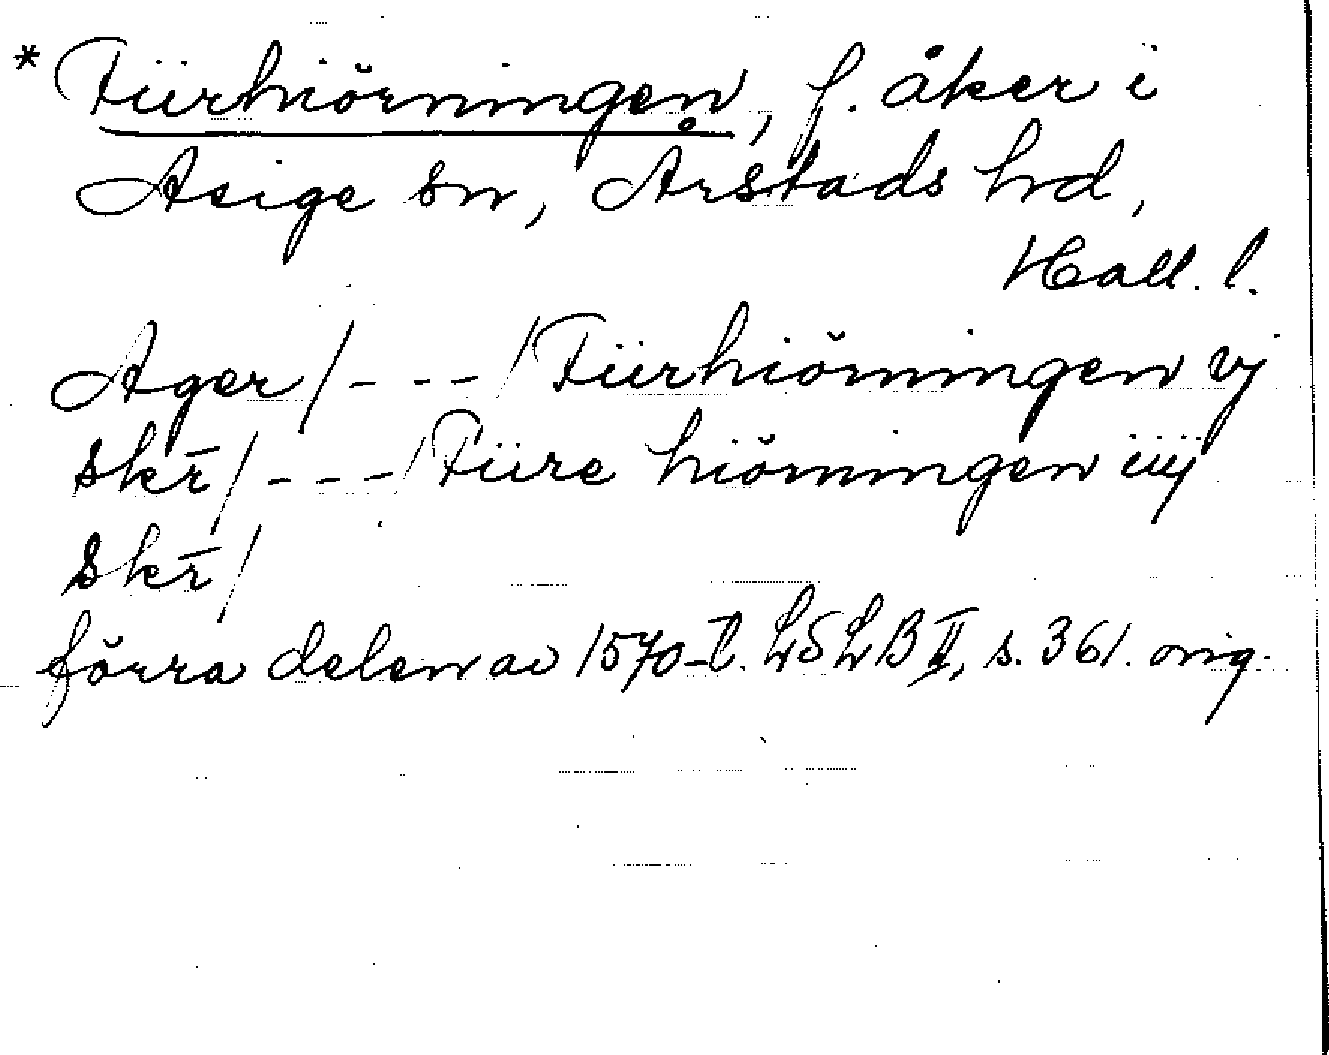 * Fiirhiörningen, f. åker i
Asige sn, Årstads hd,
Hall. l.
Ager/---/Fiirhiörningen vj
skr̄/---/Fiire hiörningen iiij
skr̄/
förra delen av 1570-t. LSLB II, s. 361. orig.